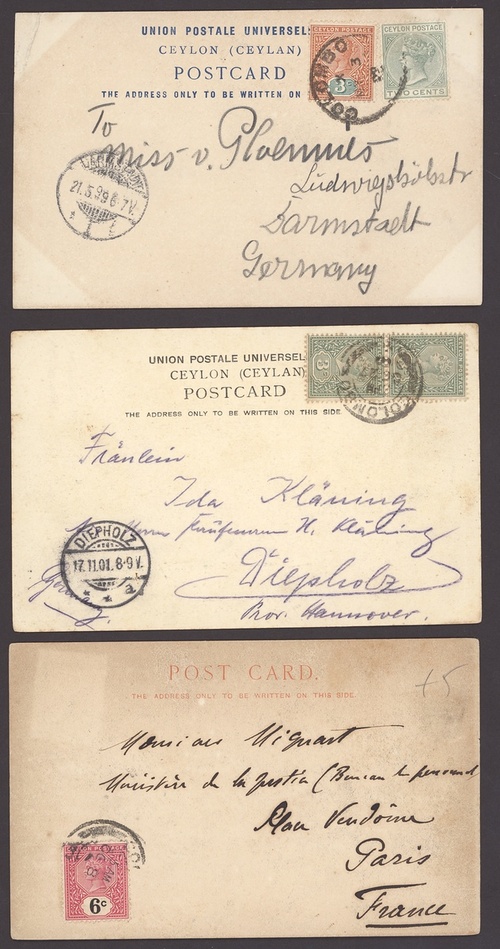 UNION POSTALE UNIVERSEL
CEYLON (CEYLAN)
POSTCARD
THE ADDRESS ONLY TO BE WRITTEN ON
CEYLON POSTAGE
3 Cs
CEYLON POSTAGE
TWO CENTS
COLOMBO
To
Miss v. Ploennies
Darmstadt
Germany
21.5.99 6-7V.
UNION POSTALE UNIVERSEL
CEYLON (CEYLAN)
POSTCARD
THE ADDRESS ONLY TO BE WRITTEN ON THIS SIDE.
COLOMBO
Fräulein
Ida Kläning
H. Kläning
Diepholz
Prov. Hannover.
DIEPHOLZ
17.11.01. 8-9V.
POST CARD.
THE ADDRESS ONLY TO BE WRITTEN ON THIS SIDE.
+5
Monsieur Mignart
Ministère de la Justice (Bureau du personnel
Place Vendôme
Paris
France
CEYLON POSTAGE
6c